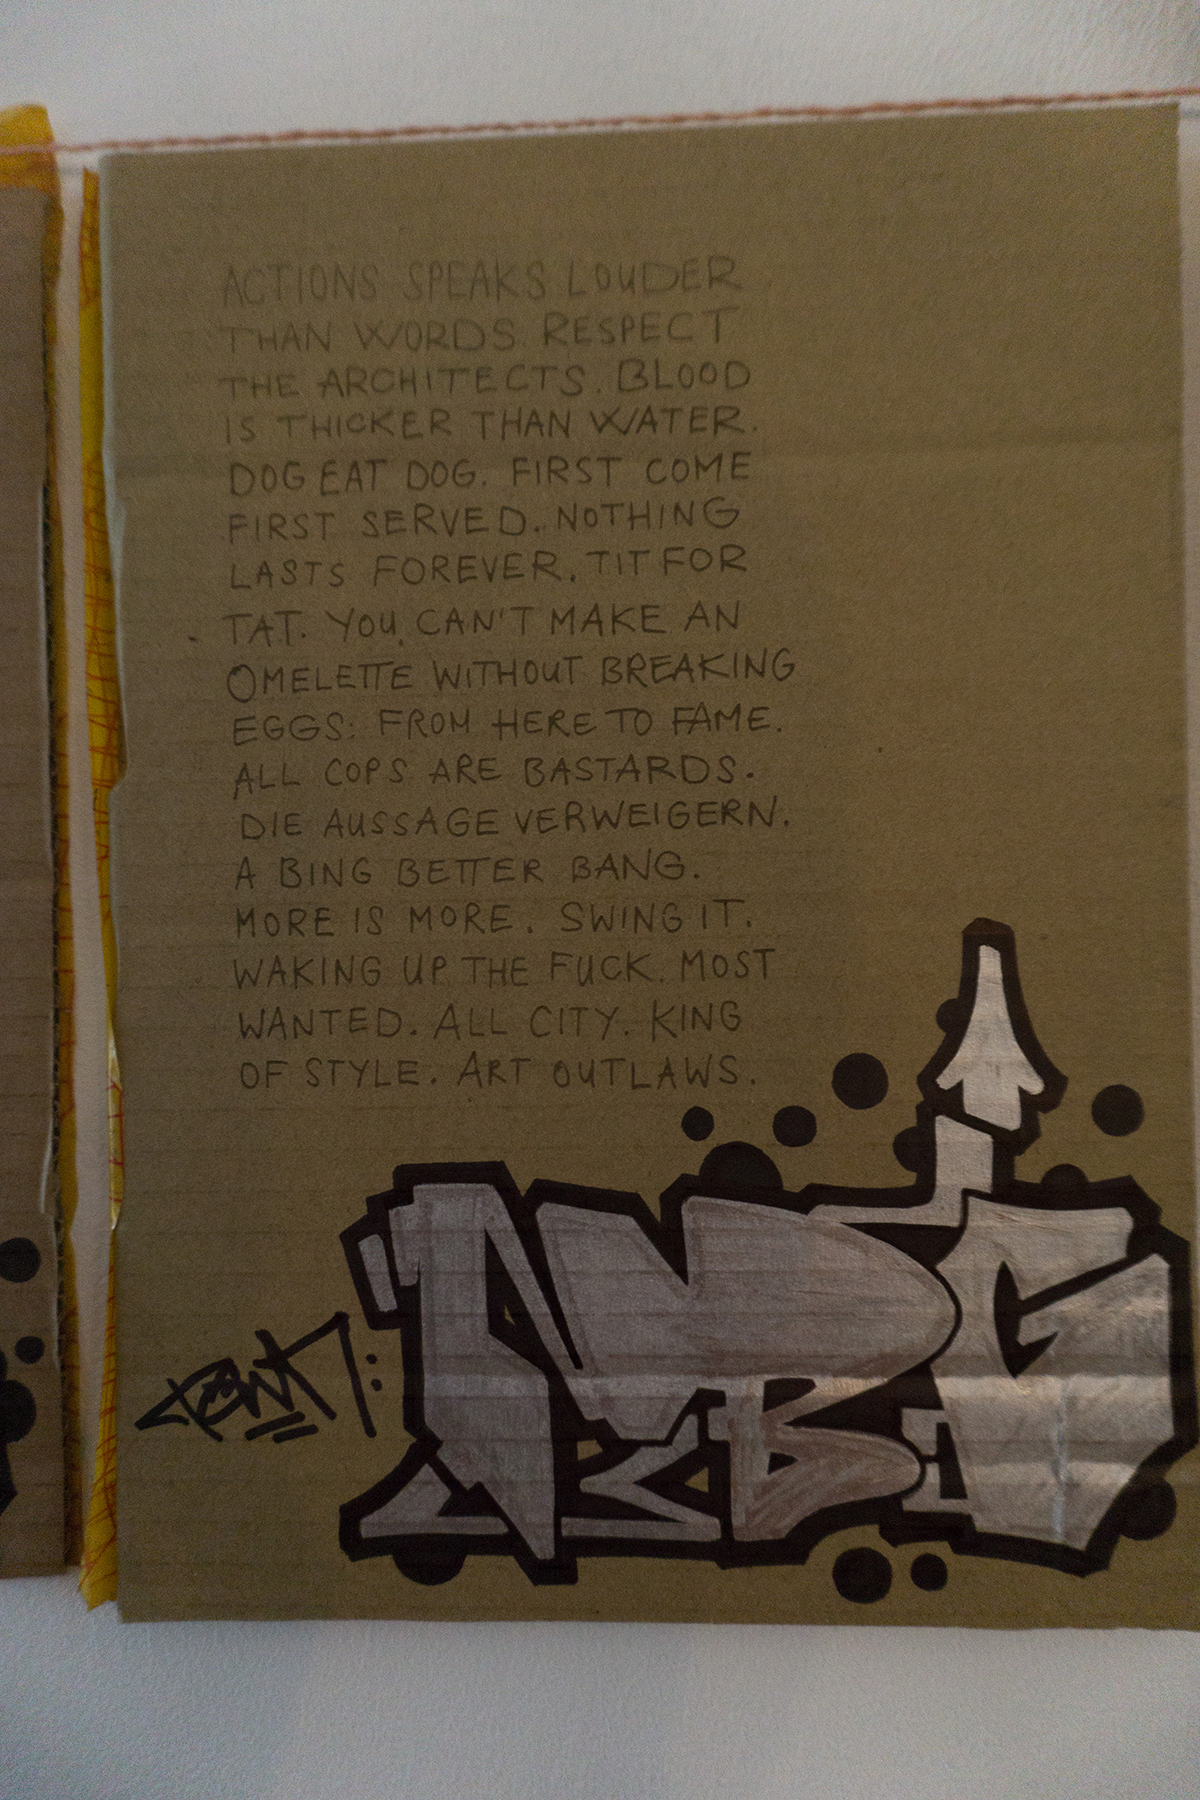 ACTIONS SPEAKS LOUDER
THAN WORDS. RESPECT
THE ARCHITECTS. BLOOD
IS THICKER THAN WATER.
DOG EAT DOG. FIRST COME
FIRST SERVED. NOTHING
LASTS FOREVER. TIT FOR
TAT. YOU CAN'T MAKE AN
OMELETTE WITHOUT BREAKING
EGGS. FROM HERE TO FAME.
ALL COPS ARE BASTARDS.
DIE AUSSAGE VERWEIGERN.
A BING BETTER BANG.
MORE IS MORE. SWING IT.
WAKING UP THE FUCK. MOST
WANTED. ALL CITY. KING
OF STYLE. ART OUTLAWS.